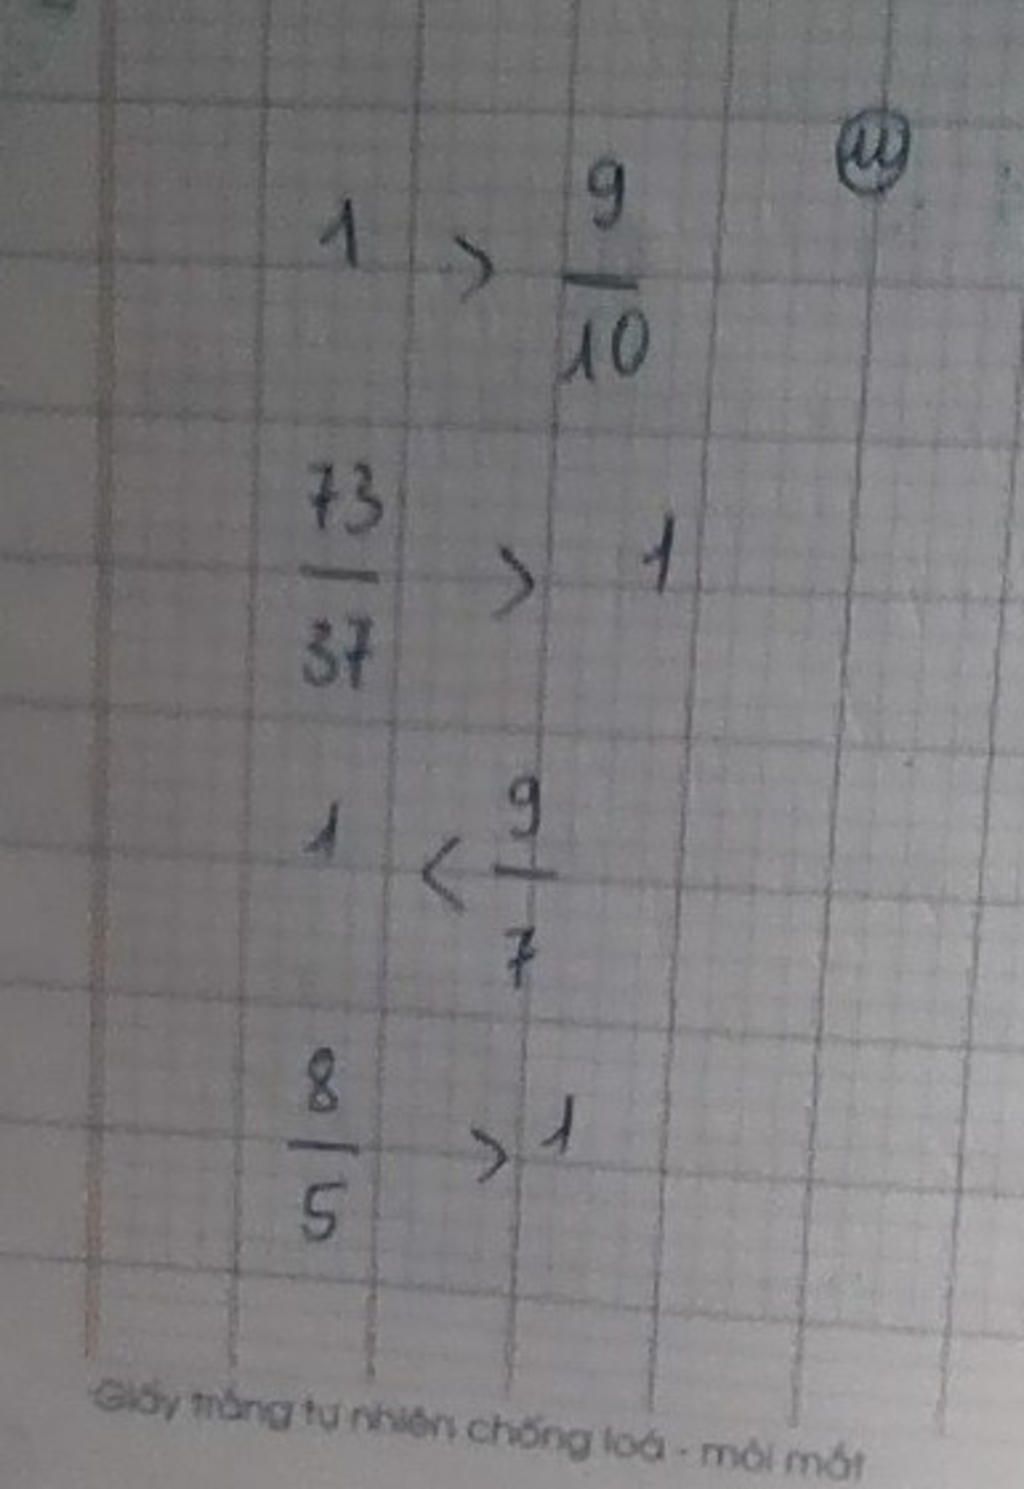 1 > 9/10
73/37 > 1
1 < 9/7
8/5 > 1
Giấy trắng tự nhiên chống loá - mỏi mắt